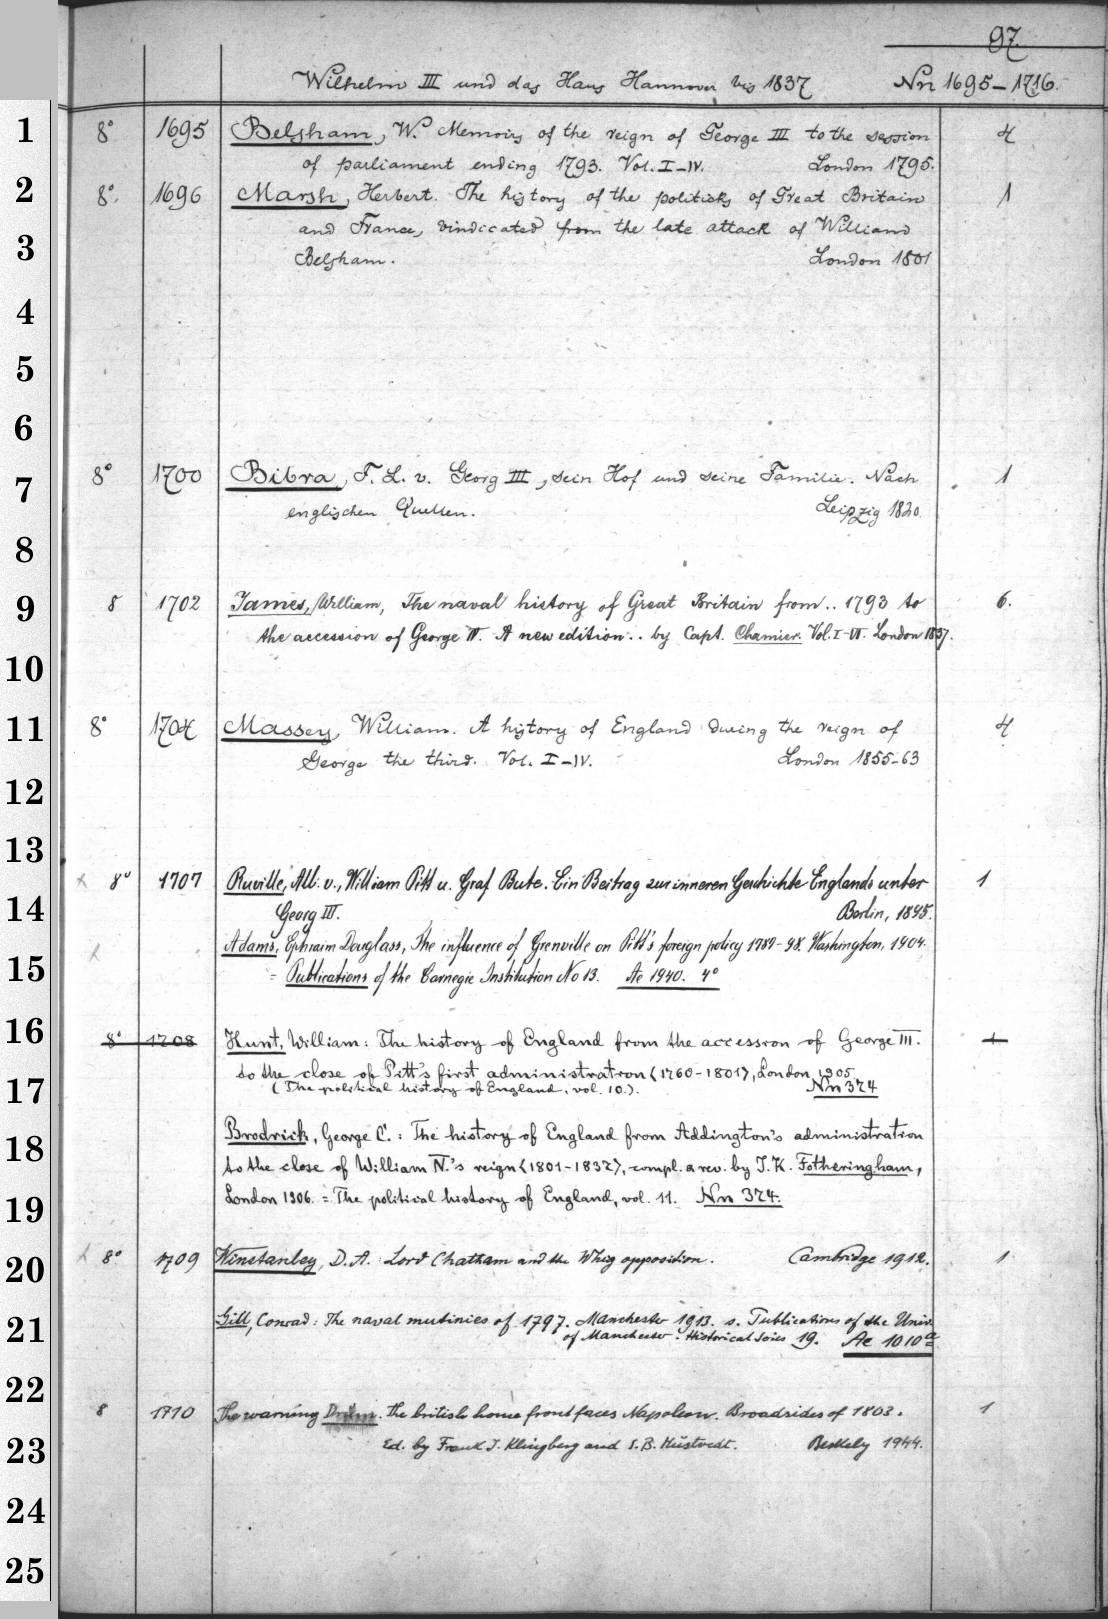 97.
Wilhelm III und das Haus Hannover bis 1837 Nn 1695–1716.
1 8° 1695 Belsham, W. Memoirs of the reign of George III to the session 4
of parliament ending 1793. Vol. I–IV. London 1795.
2 8°. 1696 Marsh, Herbert. The history of the politicks of Great Britain 1
and France, vindicated from the late attack of William
3 Belsham. London 1801
4
5
6
7 8° 1700 Bibra, F. L. v. Georg III, sein Hof und seine Familie. Nach 1
englischen Quellen. Leipzig 1820.
8
9 8 1702 James, William, The naval history of Great Britain from.. 1793 to 6.
the accession of George IV. A new edition.. by Capt. Chamier. Vol. I–VI. London 1837.
10
11 8° 1704 Massey, William. A history of England during the reign of 4
George the third. Vol. I–IV. London 1855–63
12
13
8° 1707 Ruville, Alb. v., William Pitt u. Graf Bute. Ein Beitrag zur inneren Geschichte Englands unter 1
14 Georg III. Berlin, 1895.
Adams, Ephraim Douglass, The influence of Grenville on Pitt's foreign policy 1787–98. Washington, 1904.
15 = Publications of the Carnegie Institution No 13. Ae 1940. 4°
16 8° 1708 Hunt, William: The history of England from the accession of George III. 1
to the close of Pitt's first administration <1760–1801>, London, 1905
17 (The political history of England, vol. 10.). Nn 374
18 Brodrick, George C.: The history of England from Addington's administration
to the close of William IV.'s reign <1801–1837>, compl. a. rev. by J. K. Fotheringham,
19 London 1906. = The political history of England, vol. 11. Nn 374.
20 8° 1709 Winstanley, D. A. Lord Chatham and the Whig opposition. Cambridge 1912. 1
21 Gill, Conrad: The naval mutinies of 1797. Manchester 1913. s. Publications of the Univ.
of Manchester. Historical Series 19. Ae 1010a
22
8 1710 The warning Drum. The british home front faces Napoleon. Broadsides of 1803. 1
23 Ed. by Frank J. Klingberg and S. B. Hustvedt. Berkely 1944.
24
25